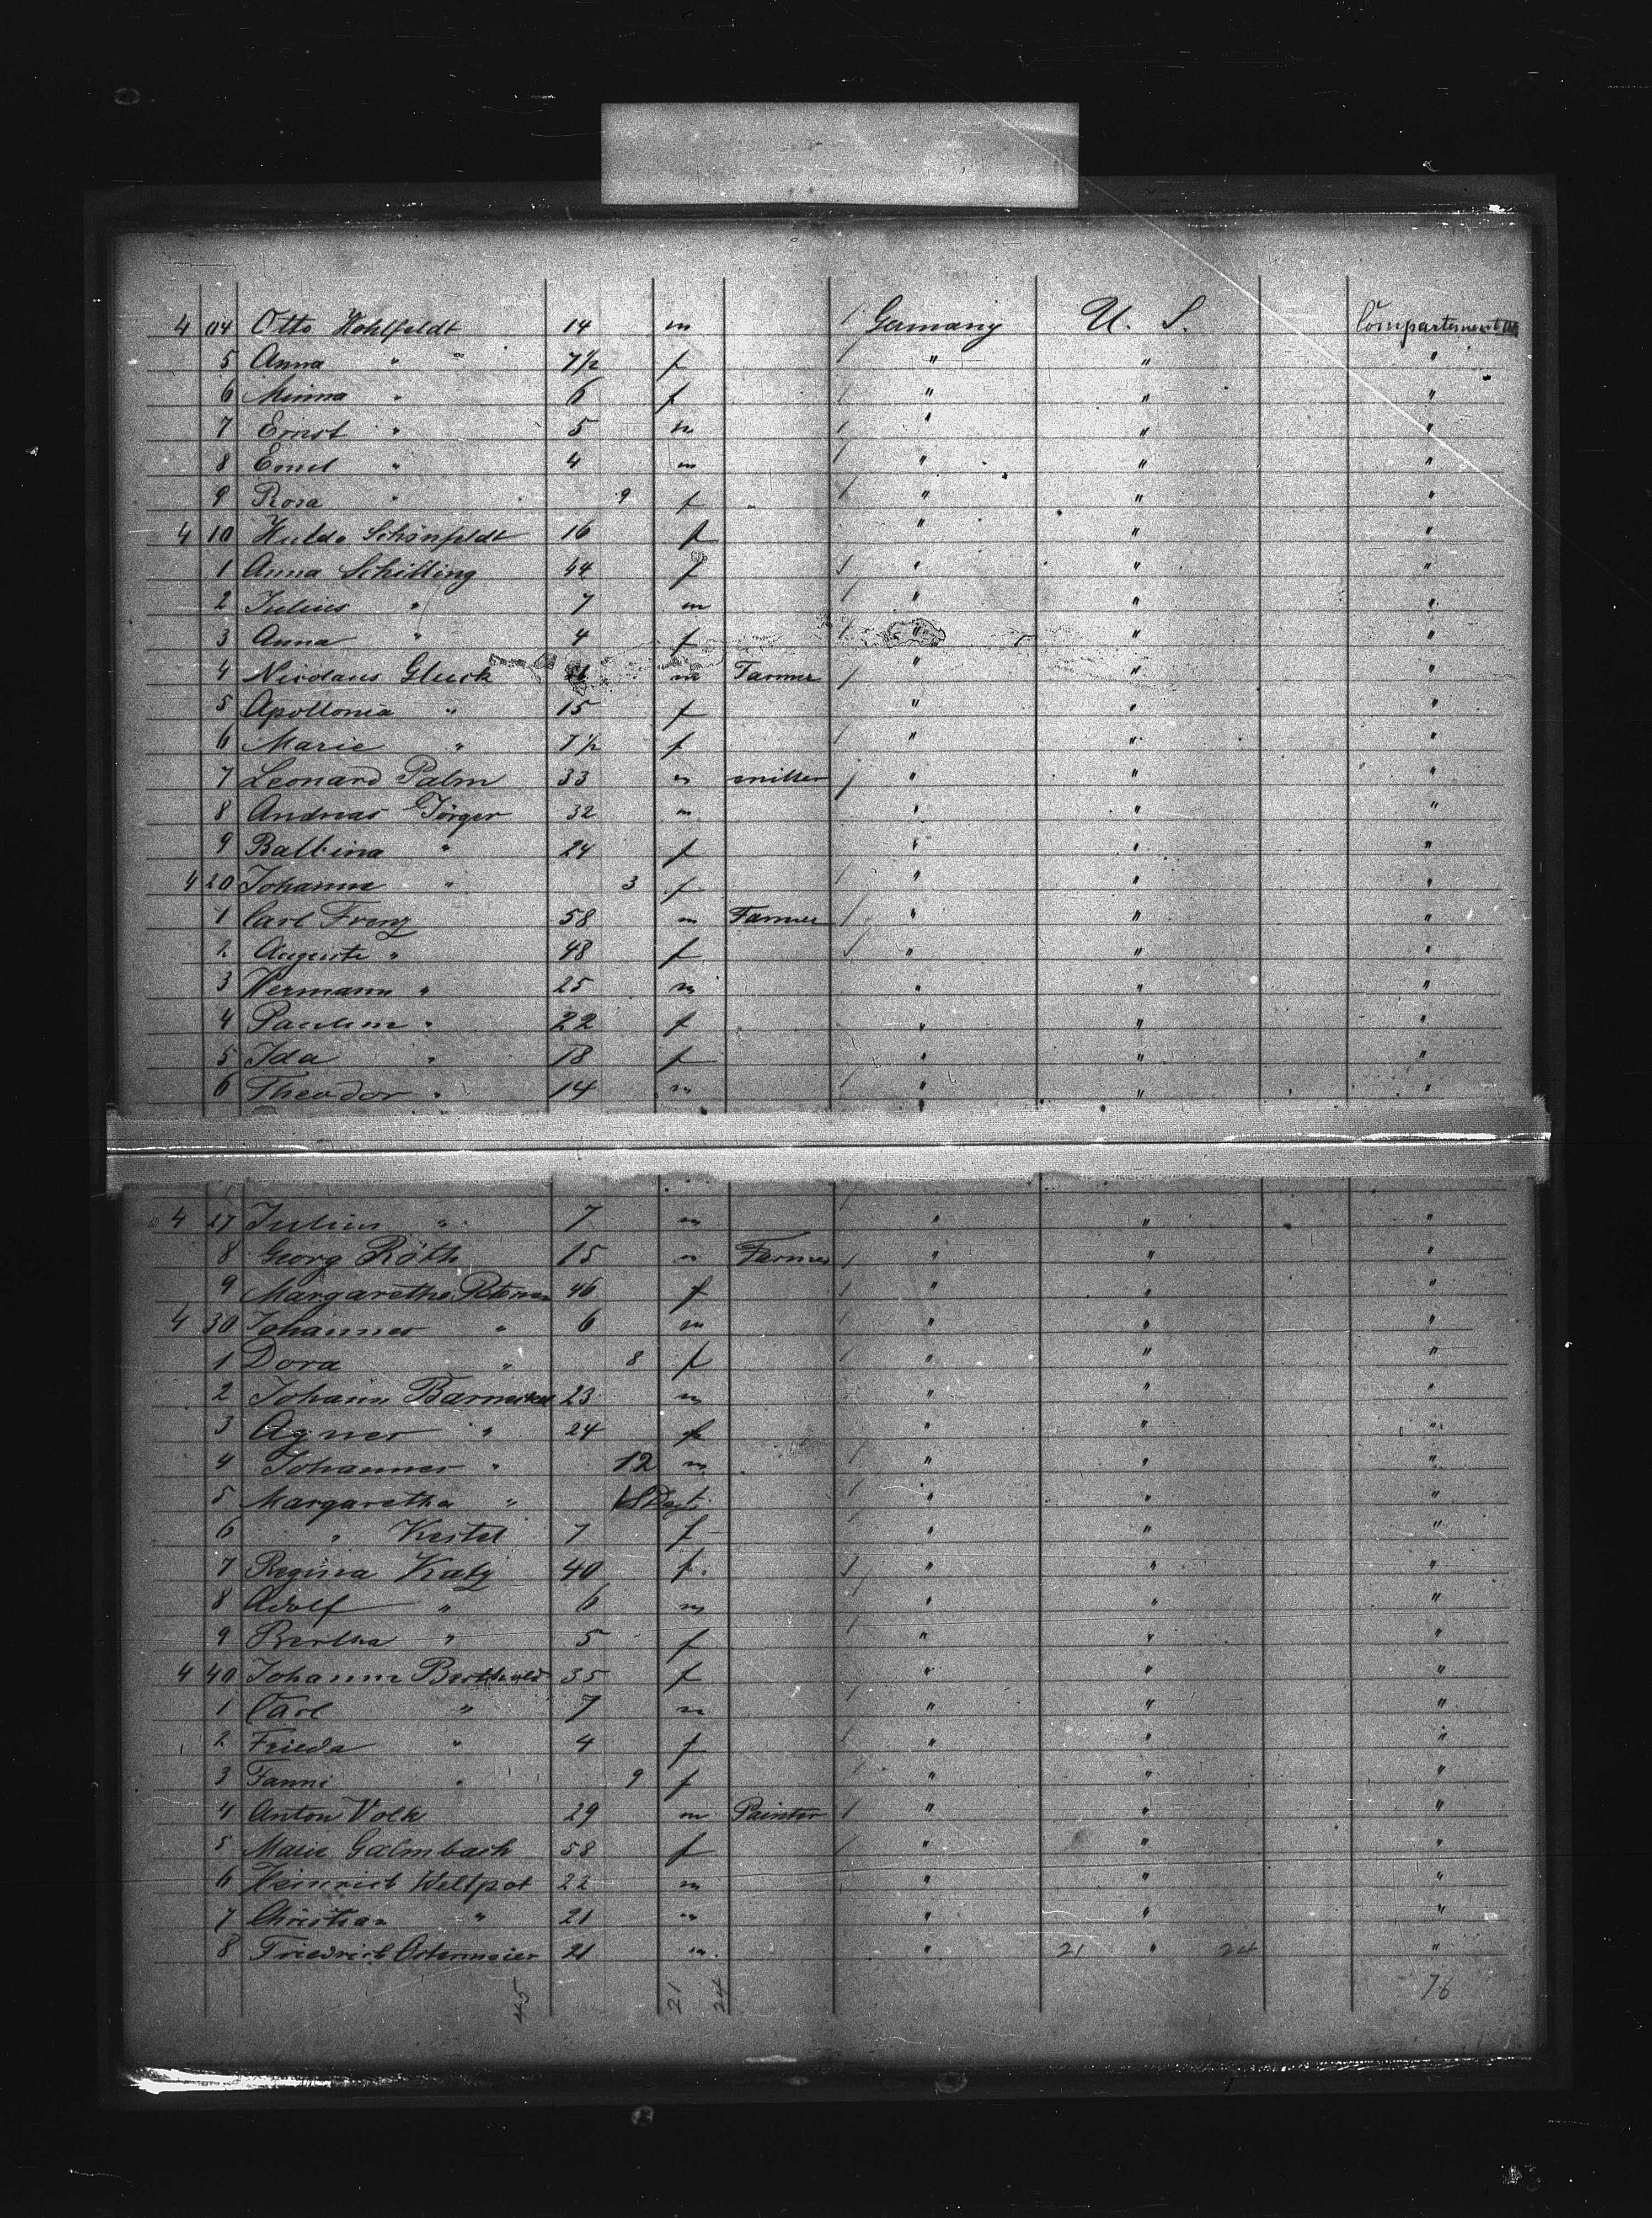 4 04 Otto Hohlfeldt 14 m Germany U. S. Compartement
5 Anna " " 7 1/2 f " " "
6 Minna " 6 f " " "
7 Ernst " 5 m " " "
8 Emil " 4 m " " "
9 Rosa " 9 f " " "
4 10 Hulda Schönfeldt 16 f " " "
1 Anna Schilling 44 f " " "
2 Julius " 7 m " " "
3 Anna " 4 f " " "
4 Nicolaus Gluck m Farmer " " "
5 Apollonia " 15 f " " "
6 Marie " 7 1/2 f " " "
7 Leonard Palm 33 m miller " " "
8 Andreas Jörger 32 m " " "
9 Balbina " 24 f " " "
4 20 Johanna " 3 f " " "
1 Carl Frenz 58 m Farmer " " "
2 Auguste " 48 f " " "
3 Hermann " 25 m " " "
4 Paulina " 22 f " " "
5 Ida " 18 f " " "
6 Theodor " 14 m " " "
4 27 Julius " 7 m " " "
8 Georg Röth 15 m Farmer " " "
9 Margaretha 46 f " " "
4 30 Johannes " 6 m " " "
1 Dora " 8 f " " "
2 Johann 23 m " " "
3 Agnes " 24 f " " "
4 Johannes " 12 m " " "
5 Margaretha " " " "
6 " Kestel 7 f " " "
7 Regina Katz 40 f. " " "
8 Adolf " 6 m " " "
9 Bertha " 5 f " " "
4 40 Johanna Berthold 35 f " " "
1 Carl " 7 m " " "
2 Frieda " 4 f " " "
3 Fanni " 9 f " " "
4 Anton Volk 29 m Painter " " "
5 Marie Galmbach 58 f " " "
6 Heinrich Weltpot 22 m " " "
7 Christian " 21 m " " "
8 Friedrich Ostermeier 21 m. " 21 " 24 "
45 21 24 76